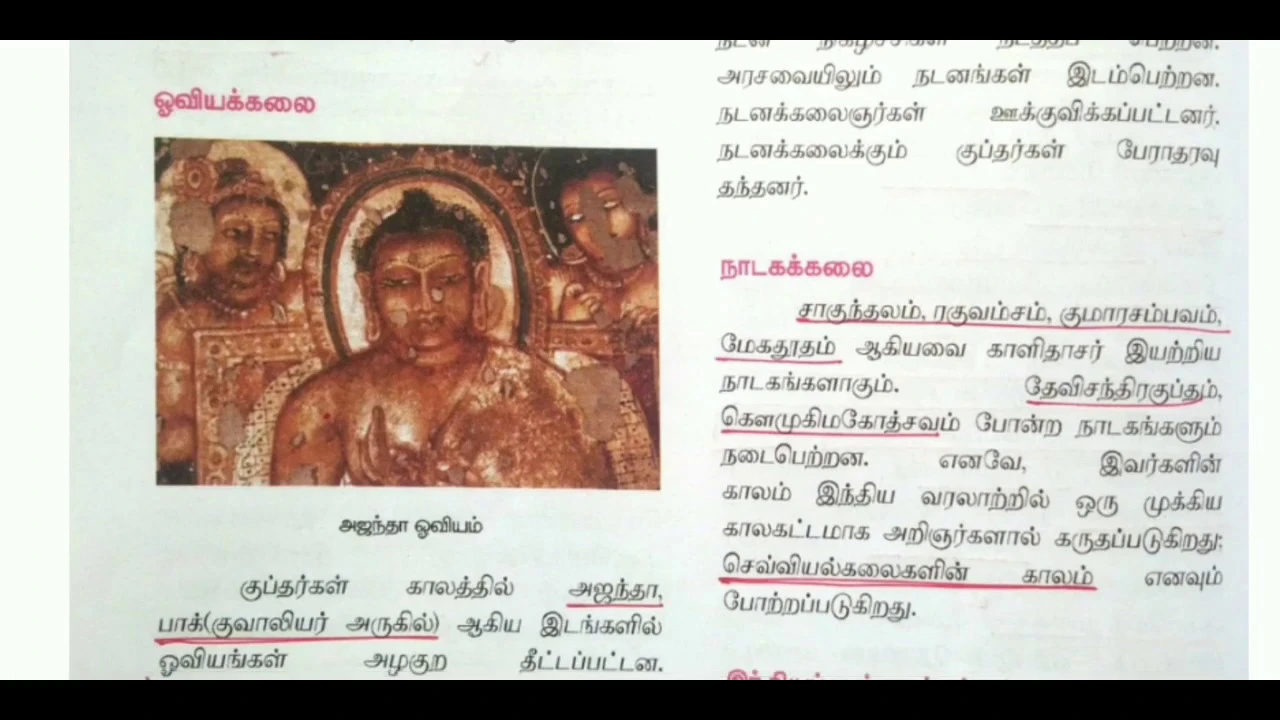 ஓவியக்கலை
அஜந்தா ஓவியம்
குப்தர்கள் காலத்தில் அஜந்தா,
பாக்(குவாலியர் அருகில்) ஆகிய இடங்களில்
ஓவியங்கள் அழகுற தீட்டப்பட்டன.
நடன நிகழ்ச்சிகள் நடத்தப் பெற்றன.
அரசவையிலும் நடனங்கள் இடம்பெற்றன.
நடனக்கலைஞர்கள் ஊக்குவிக்கப்பட்டனர்.
நடனக்கலைக்கும் குப்தர்கள் பேராதரவு
தந்தனர்.
நாடகக்கலை
சாகுந்தலம், ரகுவம்சம், குமாரசம்பவம்,
மேகதூதம் ஆகியவை காளிதாசர் இயற்றிய
நாடகங்களாகும். தேவிசந்திரகுப்தம்,
கௌமுகிமகோத்சவம் போன்ற நாடகங்களும்
நடைபெற்றன. எனவே, இவர்களின்
காலம் இந்திய வரலாற்றில் ஒரு முக்கிய
காலகட்டமாக அறிஞர்களால் கருதப்படுகிறது;
செவ்வியல்கலைகளின் காலம் எனவும்
போற்றப்படுகிறது.